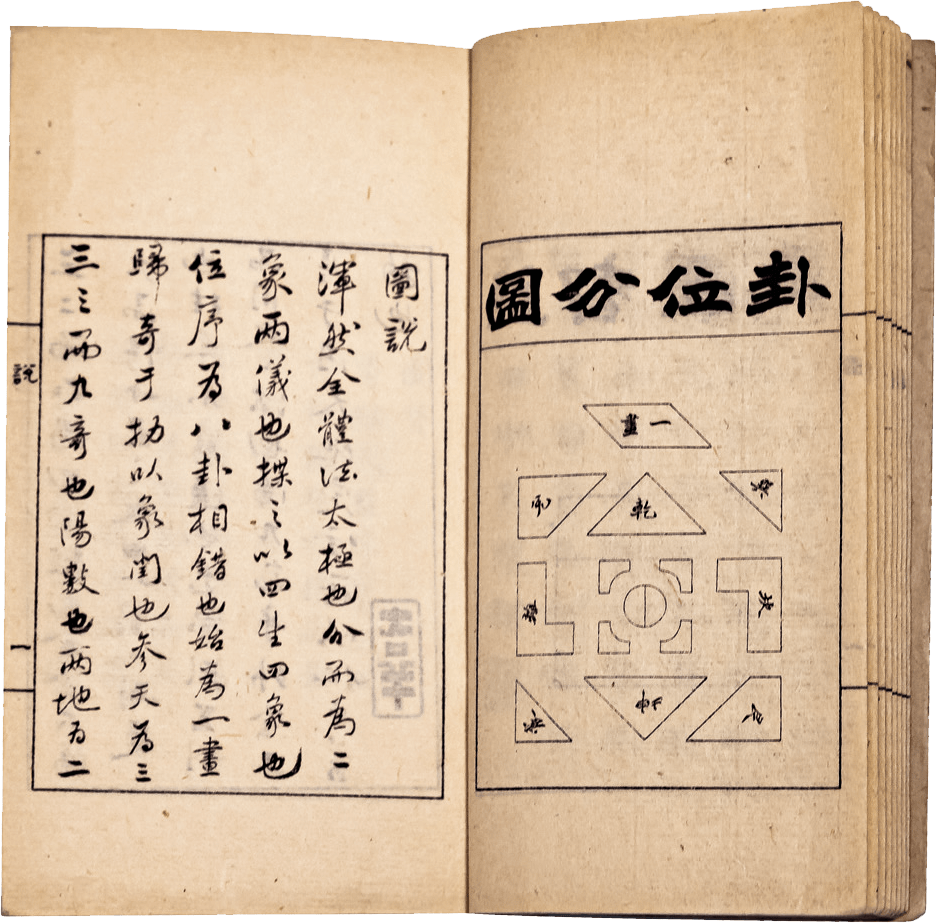 卦位分圖
一畫
巽
乾
兌
坎
離
艮
坤
震
圖說
渾然全體法太極也分而為二
象兩儀也揲之以四生四象也
位序為八卦相錯也始為一畫
歸奇于扐以象閏也參天為三
三三而九奇也陽數也兩地為二
說
一